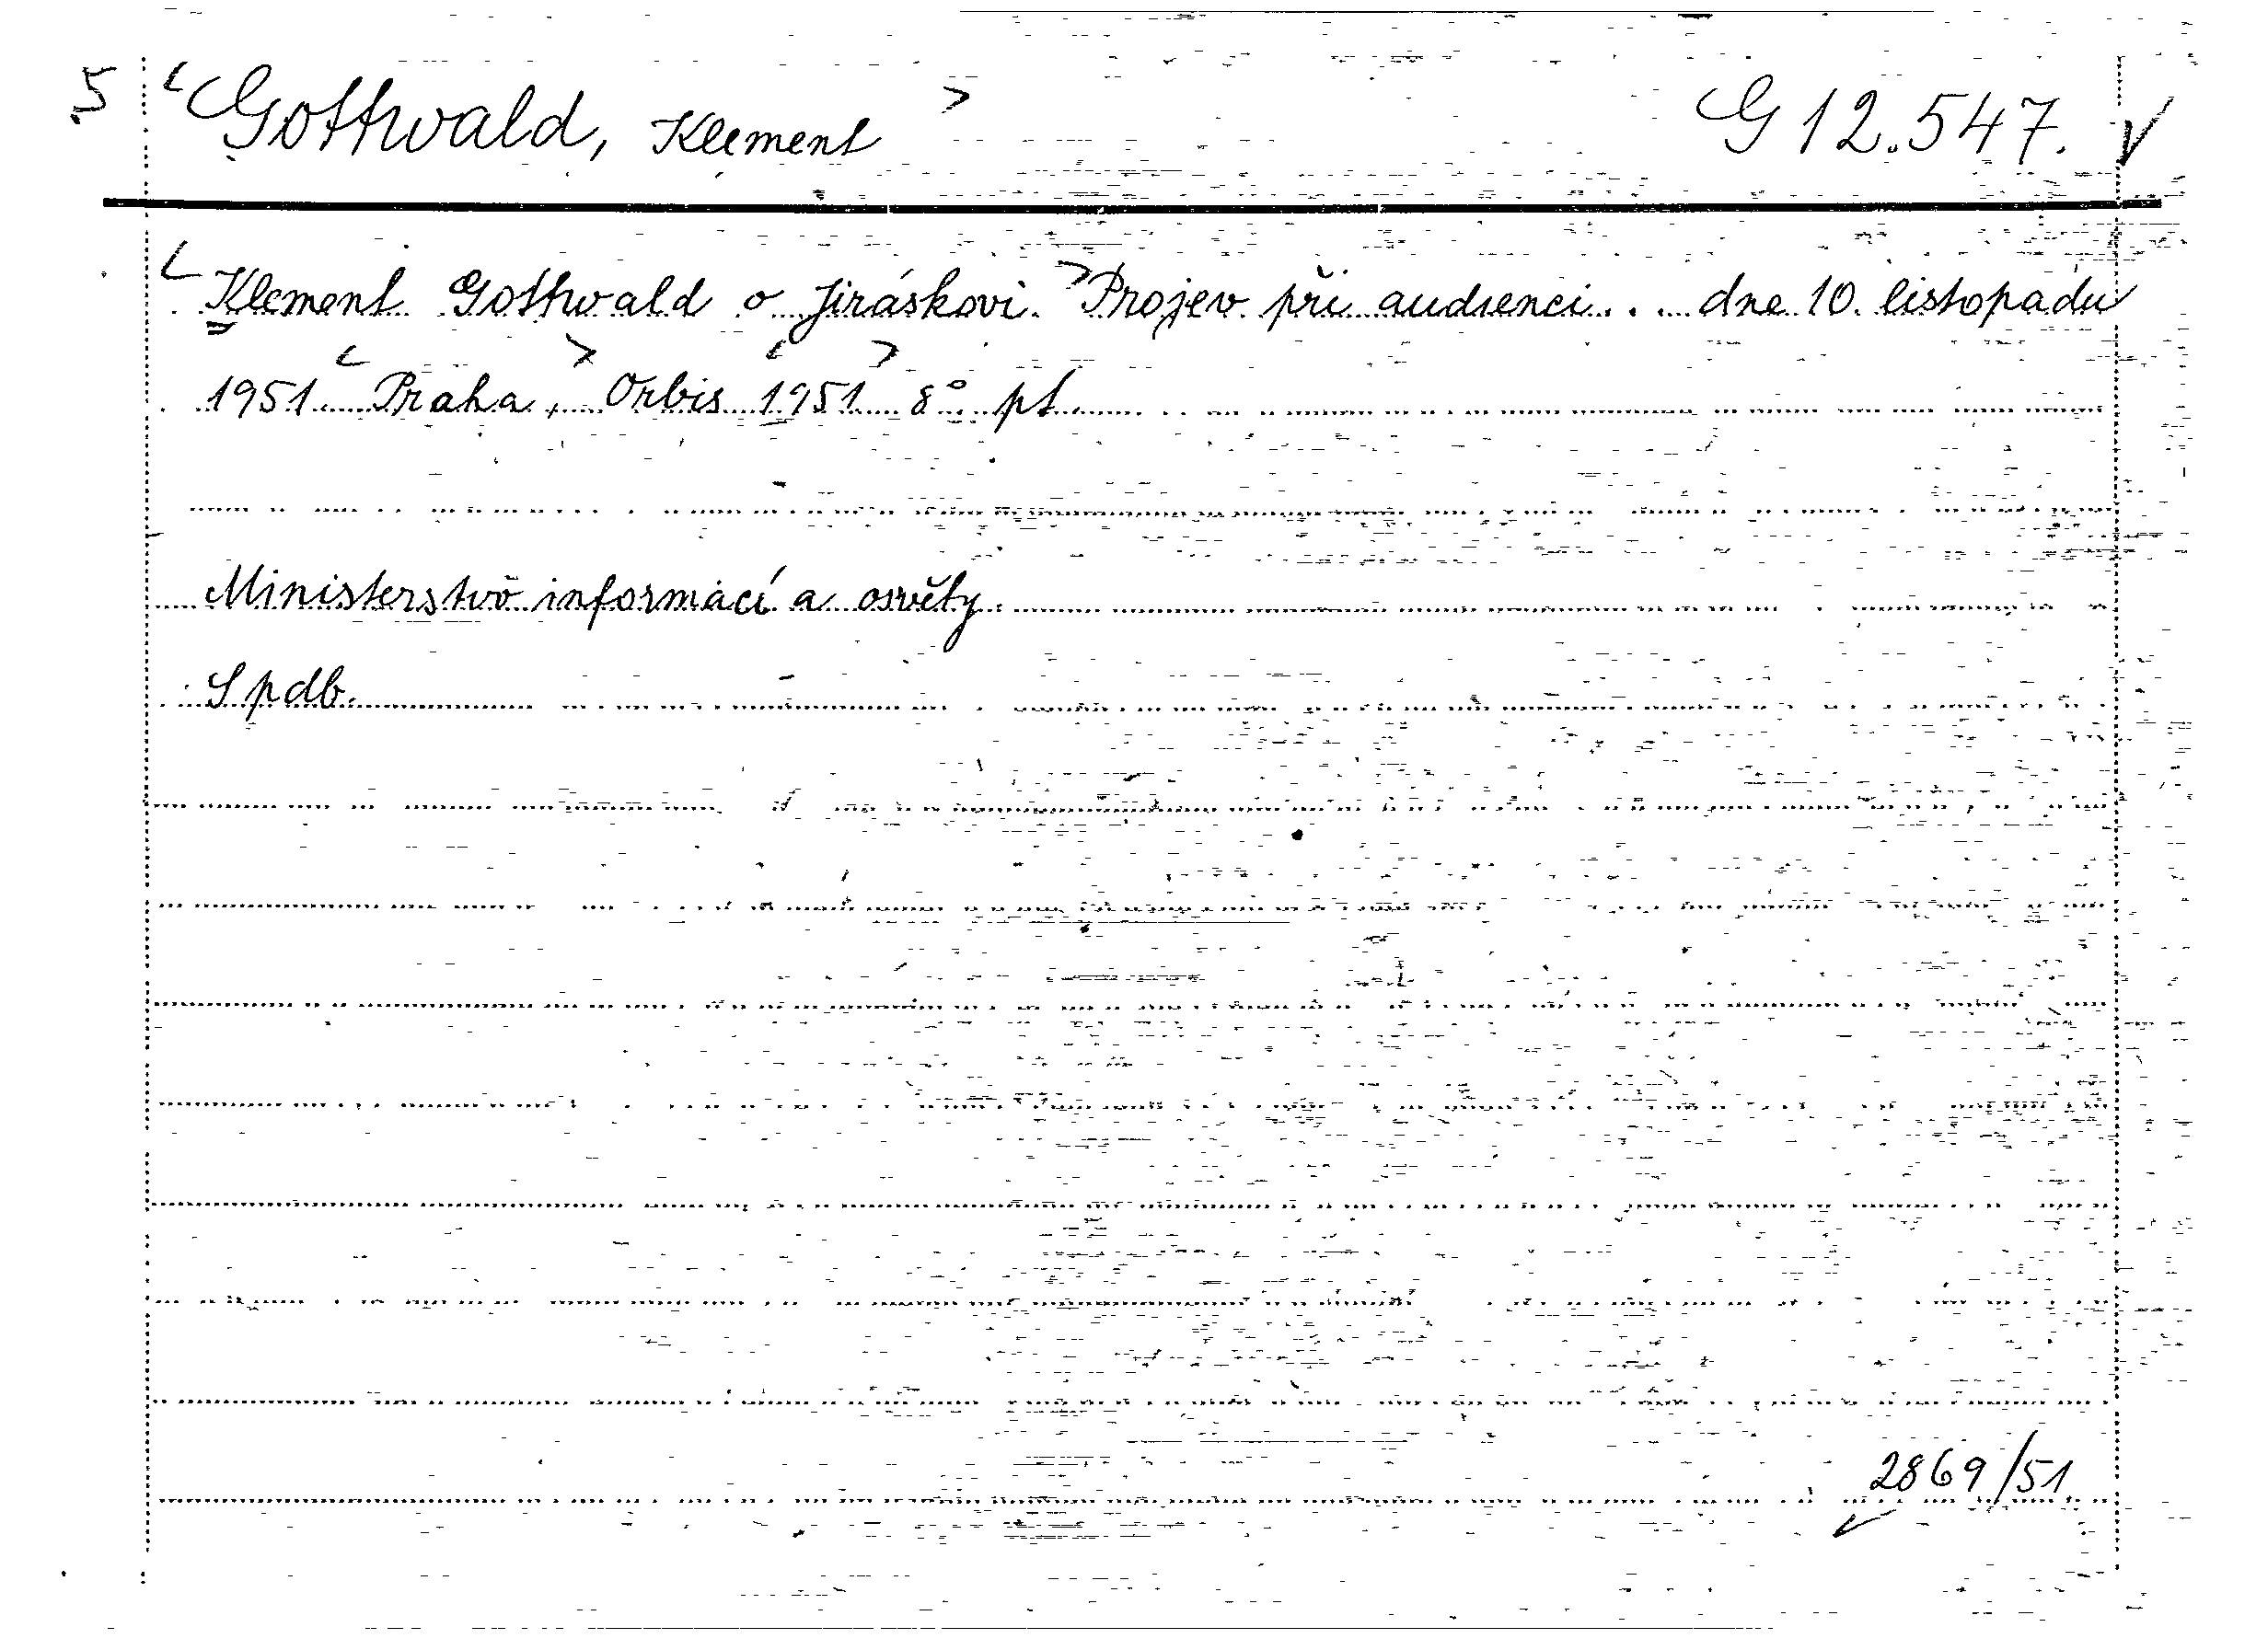 5 <Gottwald, Klement> G 12.547. V
<Klement Gottwald o Jiráskovi.> Projev při audienci... dne 10. listopadu
1951. <Praha,> Orbis <1951> 8° pt.
Ministerstvo informací a osvěty.
S pdb.
2869/51